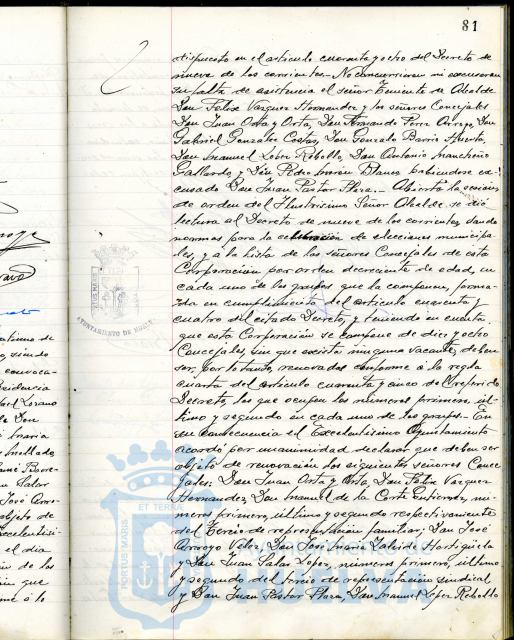 81
dispuesto en el artículo cuarenta y ocho del Decreto de
nueve de los corrientes.- No concurrieron ni excusaron
su falta de asistencia el señor Teniente de Alcalde
Don Felix Vazquez Hernandez y los señores Concejales
Don Juan Orta y Orta, Don Fernando Perez Arroyo, Don
Gabriel Gonzalez Costas, Don Gonzalo Barri
Don Manuel Lopez Rebollo, Don Antonio Mancheño
Gallardo y Don Pedro Blanco habiendose ex-
cusado Don Juan Pastor Plaza.- Abierta la sesion
de orden del Ilustrisimo Señor Alcalde se dió
lectura al Decreto de nueve de los corrientes, dando
normas para la celebración de elecciones municipa-
les, y a la lista de los señores Concejales de esta
Corporación por orden decreciente de edad, en
cada uno de los grupos que la componen, forma-
da en cumplimiento del artículo cuarenta y
cuatro del citado Decreto, y teniendo en cuenta
que esta Corporación se compone de diez y ocho
Concejales, sin que exista ninguna vacante, deben
ser, por lo tanto, renovados conforme a la regla
cuarta del artículo cuarenta y cinco del referido
Decreto, los que ocupen los números primero, úl-
timo y segundo en cada uno de los grupos.- En
su consecuencia el Excelentísimo Ayuntamiento
acordó por unanimidad declarar que deben ser
objeto de renovación los siguientes señores Conce-
jales: Don Juan Orta y Orta, Don Felix Vazquez
Hernandez, Don Manuel de la Corte Gutierrez, nú-
meros primero, último y segundo respectivamente
del Tercio de representación familiar; Don José
Arroyo Velez, Don José Maria
y Don Juan Salas Lopez, números primero, último
y segundo del tercio de representación sindical
y Don Juan Pastor Plaza, Don Manuel Lopez Rebollo
AYUNTAMIENTO DE HUELVA
PORTUS MARIS ET TERRAE
Ayuntamiento de